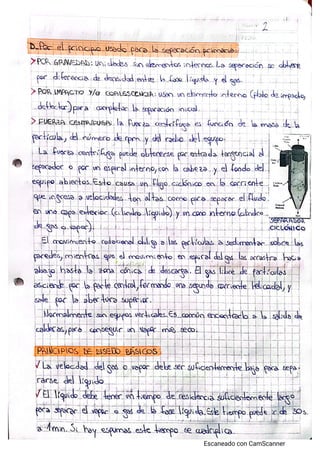 2
D-Por el principio usado para la separación primaria:
> POR GRAVEDAD: Unidades sin elementos internos. La separación se obtiene
por diferencia de densidad entre la fase líquida y el gas.
> POR IMPACTO Y/O COALESCENCIA: usan un elemento interno (placa de impacto,
deflector) para completar la separación inicial.
> FUERZA CENTRIFUGA: la fuerza centrífuga es función de la masa de la
partícula, del número de rpm y del radio del equipo.
La fuerza centrífuga puede obtenerse por entrada tangencial al
separador o por un espiral interno, con la cabeza y el fondo del
equipo abiertos. Esto causa un flujo ciclónico en la corriente
que ingresa a velocidades tan altas como para separar el fluido
en una capa exterior (cilindro líquido) y un cono interno (cilindro
de gas o vapor).
SEPARADOR
CICLÓNICO
El movimiento rotacional obliga a las partículas a sedimentar sobre las
paredes, mientras que el movimiento en espiral del gas las arrastra hacia
abajo hasta la zona cónica de descarga. El gas libre de partículas
asciende por la parte central, formando una segunda corriente helicoidal, y
sale por la abertura superior.
Normalmente son equipos verticales. Es común encontrarlo a la salida de
calderas, para conseguir un vapor más seco.
PRINCIPIOS DE DISEÑO BÁSICOS
✓ La velocidad del gas o vapor debe ser suficientemente baja para sepa-
rarse del líquido.
✓ El líquido debe tener un tiempo de residencia suficientemente largo
para separar el vapor o gas de la fase líquida. Este tiempo puede ir de 30s
a 1min. Si hay espumas este tiempo se cuadriplica.
Escaneado con CamScanner